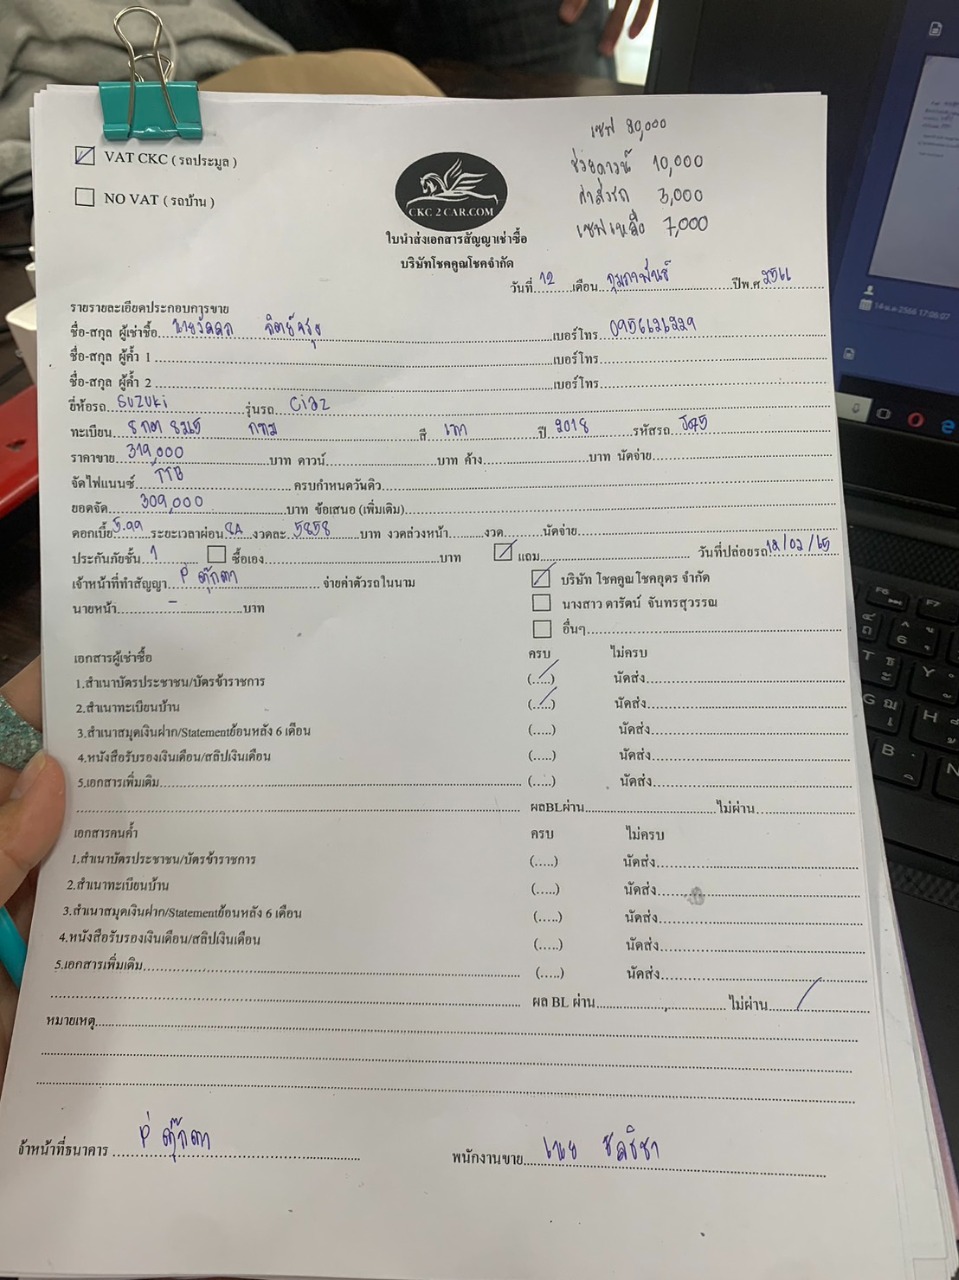 เซฟ 20,000
☑ VAT CKC ( รถประมูล )
ช่วยดาวน์ 10,000
ค่าส่งรถ 3,000
☐ NO VAT ( รถบ้าน )
CKC 2 CAR.COM
เซฟเหลือ 7,000
ใบนำส่งเอกสารสัญญาเช่าซื้อ
บริษัทโชคคูณโชคจำกัด
วันที่ 12 เดือน กุมภาพันธ์ ปีพ.ศ 2561
รายรายละเอียดประกอบการขาย
ชื่อ-สกุล ผู้เช่าซื้อ นาย เบอร์โทร 0956121229
ชื่อ-สกุล ผู้ค้ำ 1 เบอร์โทร
ชื่อ-สกุล ผู้ค้ำ 2 เบอร์โทร
ยี่ห้อรถ Suzuki รุ่นรถ Ciaz
ทะเบียน กทม สี เทา ปี 2018 รหัสรถ J95
ราคาขาย 319,000 บาท ดาวน์ บาท ค้าง บาท นัดจ่าย
จัดไฟแนนซ์ TTB ครบกำหนดวันคิว
ยอดจัด 309,000 บาท ข้อเสนอ (เพิ่มเติม)
ดอกเบี้ย 5.99 ระยะเวลาผ่อน 84 งวดละ 5858 บาท งวดล่วงหน้า งวด นัดจ่าย
ประกันภัยชั้น 1 ☐ ซื้อเอง บาท ☑ แถม วันที่ปล่อยรถ 12/02/65
เจ้าหน้าที่ทำสัญญา P ตุ๊กตา จ่ายค่าตัวรถในนาม ☑ บริษัท โชคคูณโชคอุดร จำกัด
นายหน้า - บาท ☐ นางสาว ดารัตน์ จันทรสุวรรณ
☐ อื่นๆ
เอกสารผู้เช่าซื้อ ครบ ไม่ครบ
1.สำเนาบัตรประชาชน/บัตรข้าราชการ (../..) นัดส่ง
2.สำเนาทะเบียนบ้าน (../..) นัดส่ง
3.สำเนาสมุดเงินฝาก/Statementย้อนหลัง 6 เดือน (.....) นัดส่ง
4.หนังสือรับรองเงินเดือน/สลิปเงินเดือน (.....) นัดส่ง
5.เอกสารเพิ่มเติม (.....) นัดส่ง
ผลBLผ่าน ไม่ผ่าน
เอกสารคนค้ำ ครบ ไม่ครบ
1.สำเนาบัตรประชาชน/บัตรข้าราชการ (.....) นัดส่ง
2.สำเนาทะเบียนบ้าน (.....) นัดส่ง
3.สำเนาสมุดเงินฝาก/Statementย้อนหลัง 6 เดือน (.....) นัดส่ง
4.หนังสือรับรองเงินเดือน/สลิปเงินเดือน (.....) นัดส่ง
5.เอกสารเพิ่มเติม (.....) นัดส่ง
ผล BL ผ่าน ไม่ผ่าน /
หมายเหตุ
จ้าหน้าที่ธนาคาร P ตุ๊กตา
พนักงานขาย เนย ชลธิชา